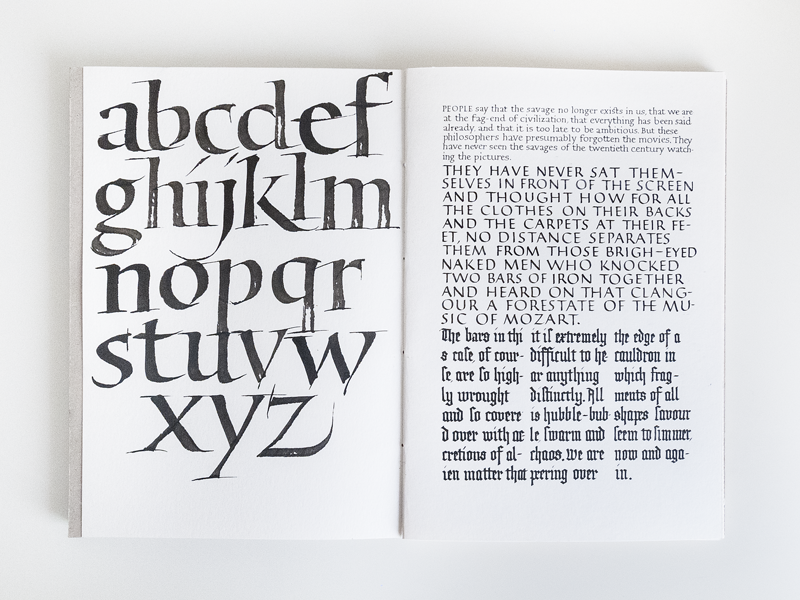 abcdef
ghijklm
nopqr
stuvw
xyz
PEOPLE say that the savage no longer exists in us, that we are
at the fag-end of civilization, that everything has been said
already, and that it is too late to be ambitious. But these
philosophers have presumably forgotten the movies. They
have never seen the savages of the twentieth century watch-
ing the pictures.
THEY HAVE NEVER SAT THEM-
SELVES IN FRONT OF THE SCREEN
AND THOUGHT HOW FOR ALL
THE CLOTHES ON THEIR BACKS
AND THE CARPETS AT THEIR FE-
ET, NO DISTANCE SEPARATES
THEM FROM THOSE BRIGH-EYED
NAKED MEN WHO KNOCKED
TWO BARS OF IRON TOGETHER
AND HEARD ON THAT CLANG-
OUR A FORESTATE OF THE MU-
SIC OF MOZART.
The bars in thi
s case, of cour-
se, are so high-
ly wrought
and so covere
d over with ac
cretions of al-
ien matter that
it is extremely
difficult to he
ar anything
distinctly. All
is hubble-bub
le swarm and
chaos. we are
peering over
the edge of a
cauldron in
which frag-
ments of all
shapes savour
seem to simmer,
now and aga-
in.